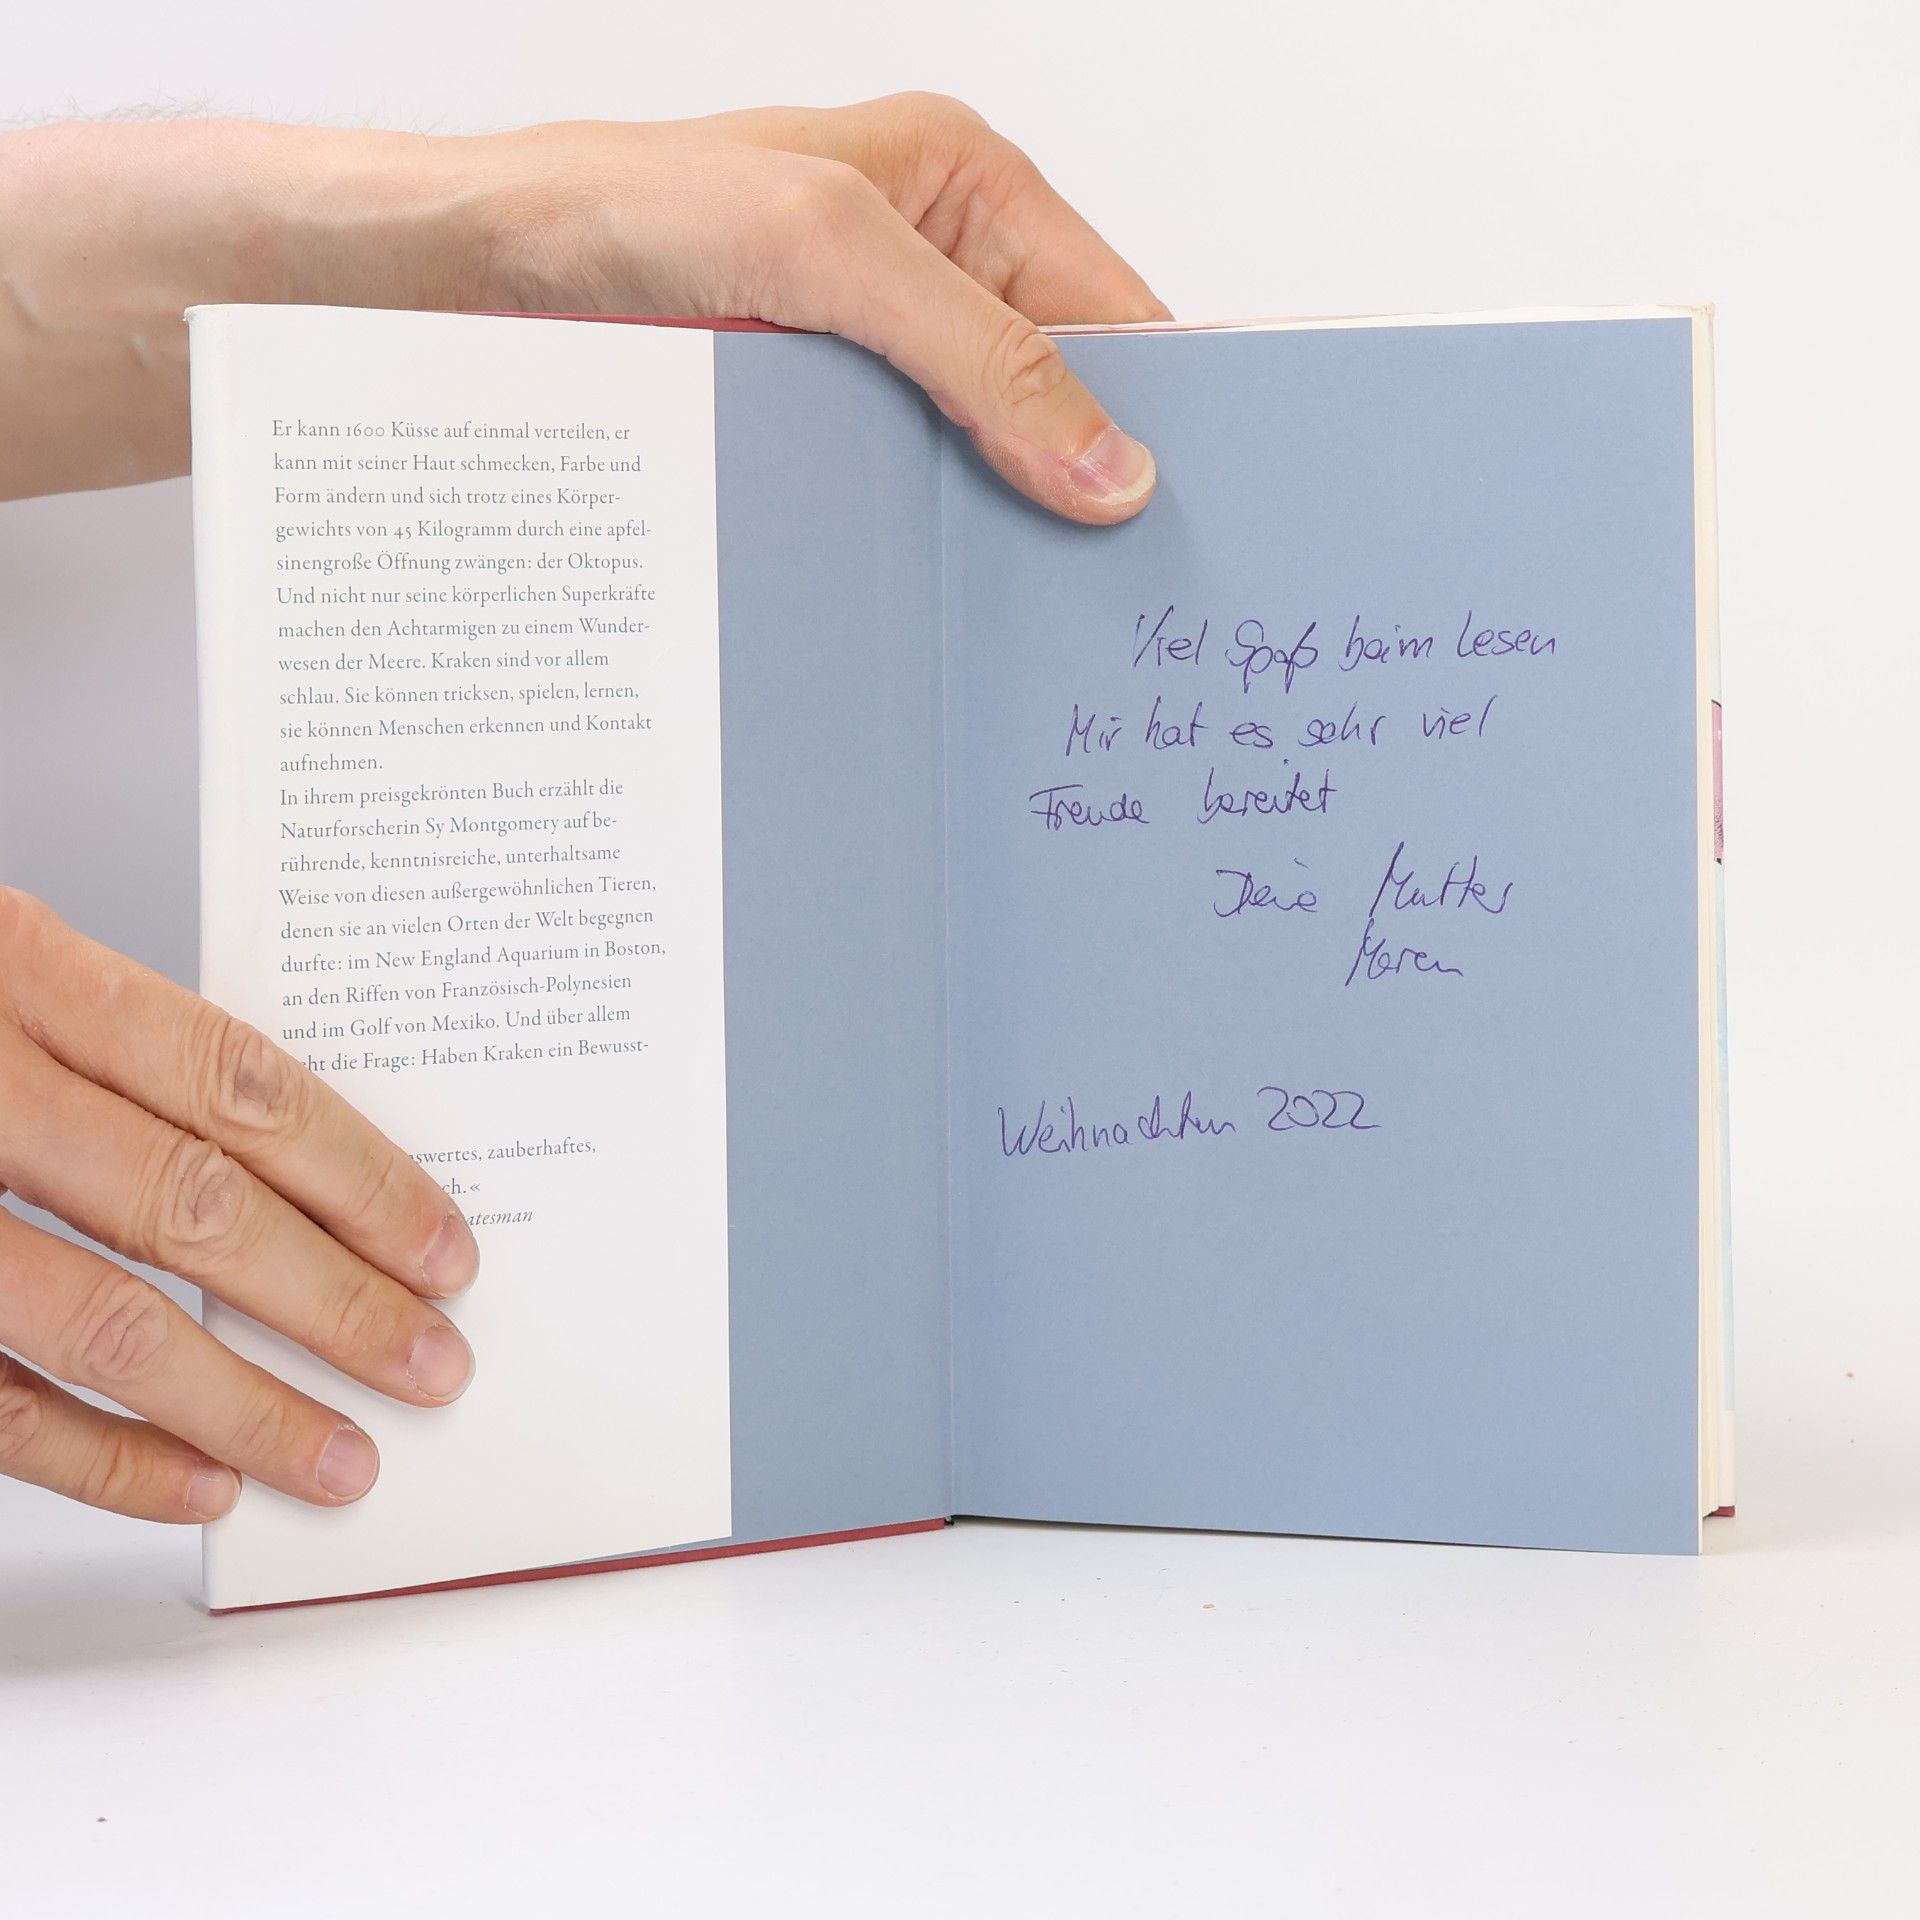 Er kann 1600 Küsse auf einmal verteilen, er
kann mit seiner Haut schmecken, Farbe und
Form ändern und sich trotz eines Körper-
gewichts von 45 Kilogramm durch eine apfel-
sinengroße Öffnung zwängen: der Oktopus.
Und nicht nur seine körperlichen Superkräfte
machen den Achtarmigen zu einem Wunder-
wesen der Meere. Kraken sind vor allem
schlau. Sie können tricksen, spielen, lernen,
sie können Menschen erkennen und Kontakt
aufnehmen.
In ihrem preisgekrönten Buch erzählt die
Naturforscherin Sy Montgomery auf be-
rührende, kenntnisreiche, unterhaltsame
Weise von diesen außergewöhnlichen Tieren,
denen sie an vielen Orten der Welt begegnen
durfte: im New England Aquarium in Boston,
an den Riffen von Französisch-Polynesien
und im Golf von Mexiko. Und über allem
die Frage: Haben Kraken ein Bewusst-
zauberhaftes,
Viel Spaß beim Lesen
Mir hat es sehr viel
Freude bereitet
Deine Mutter
Maren
Weihnachten 2022